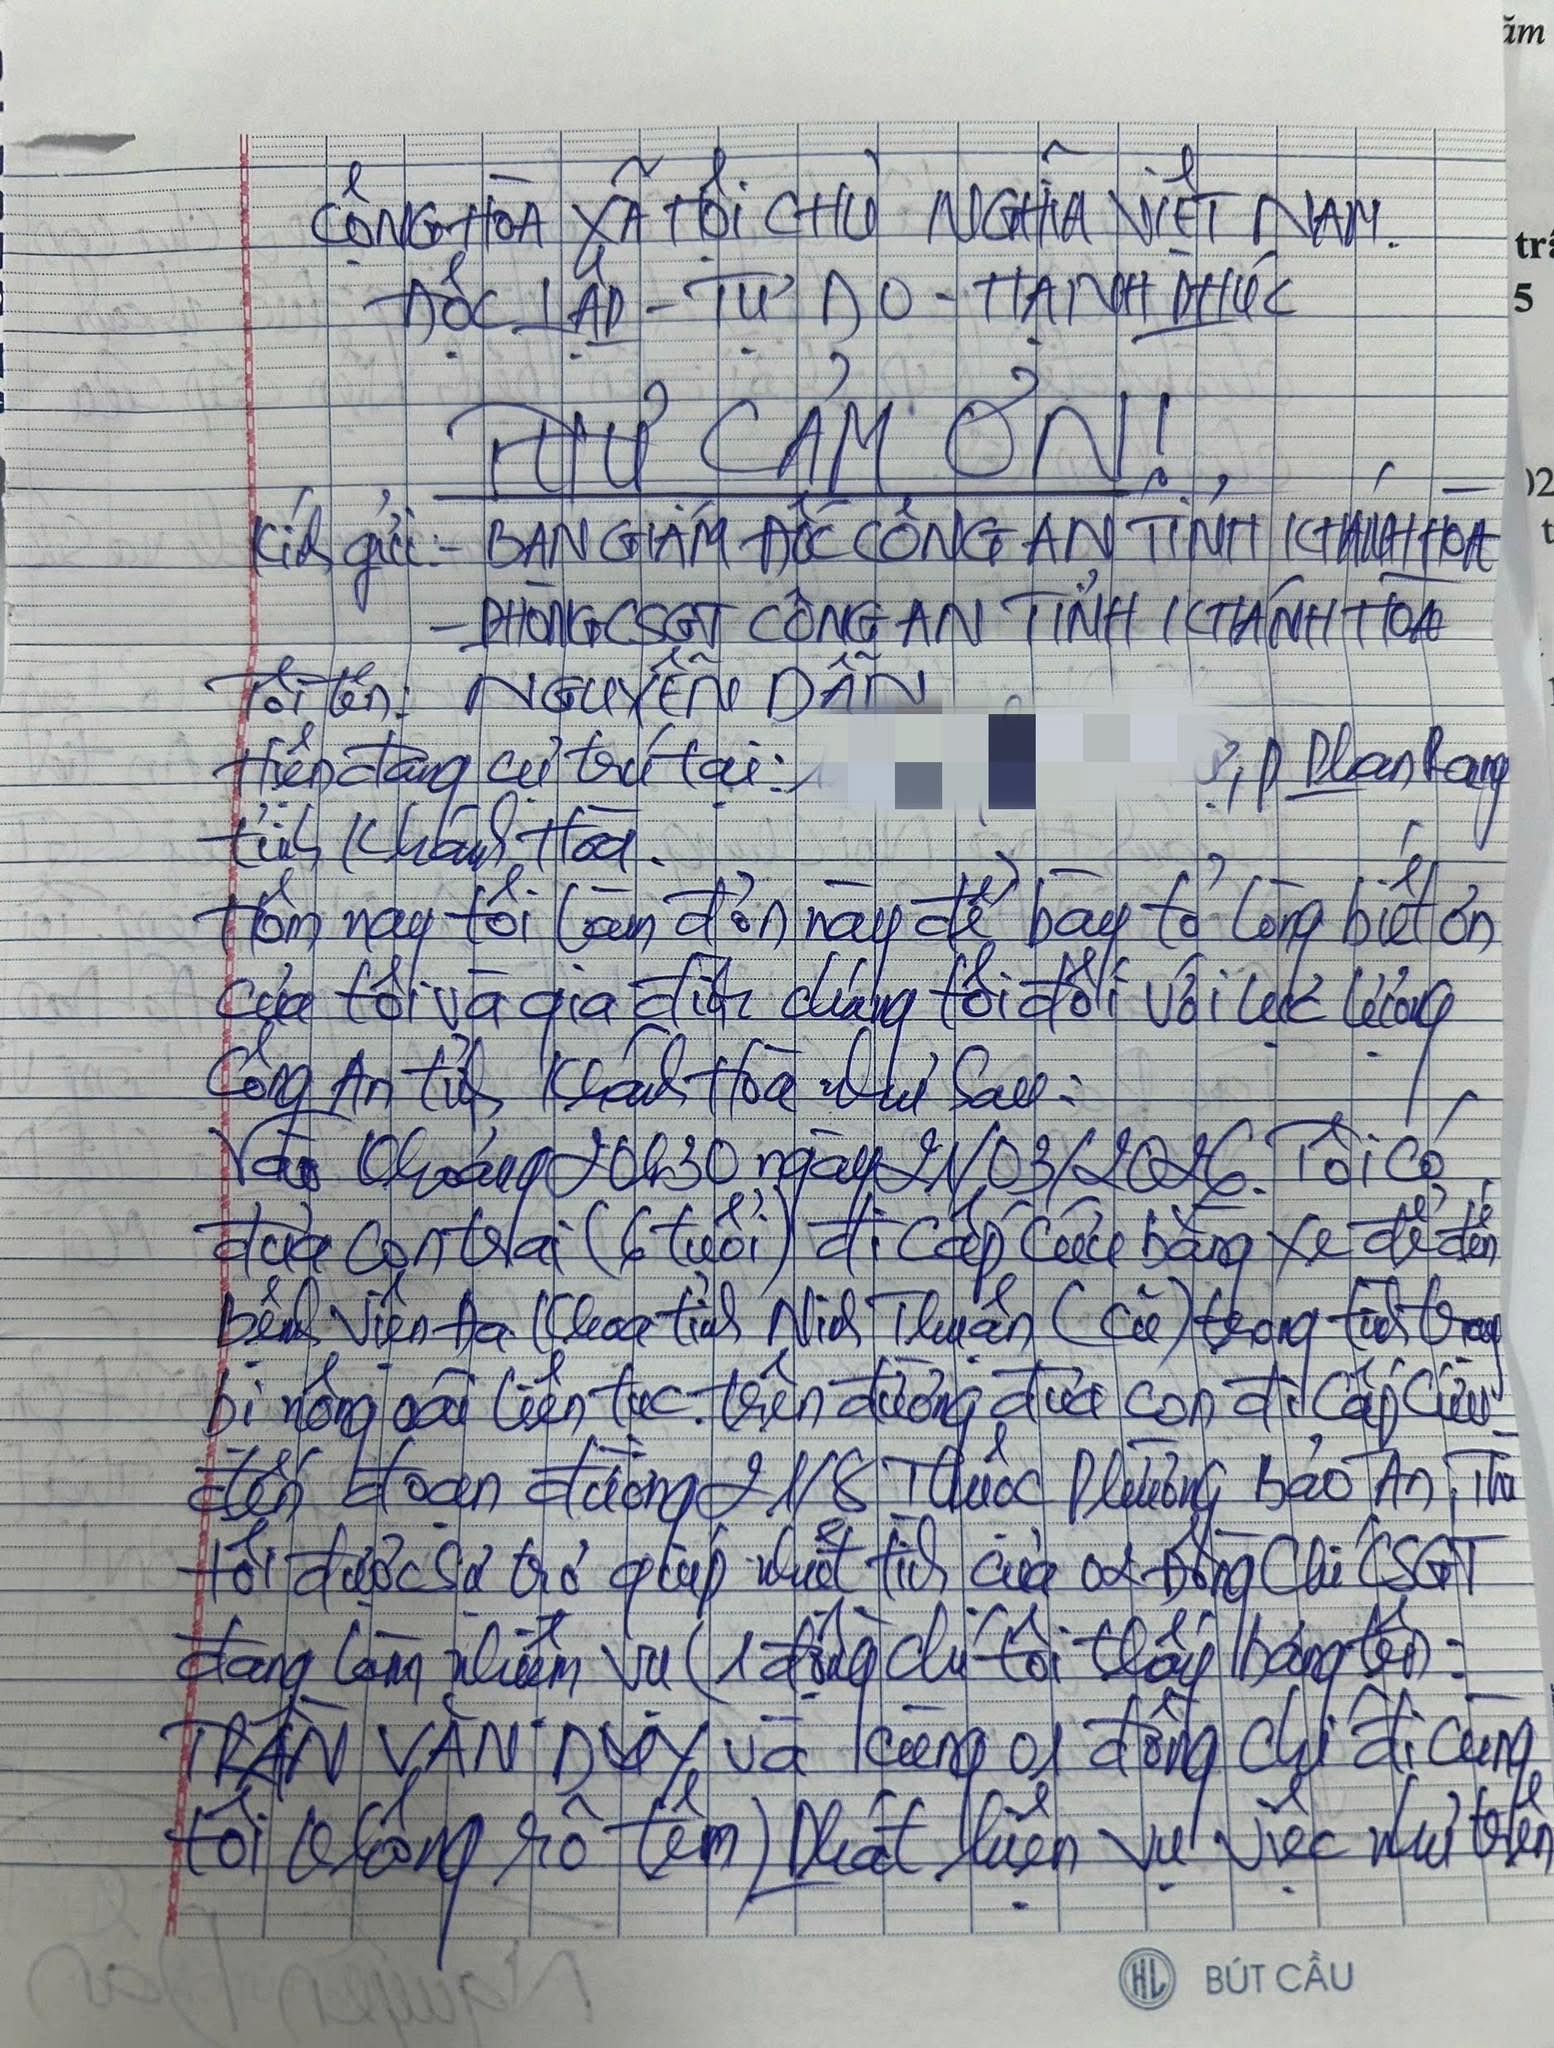 CỘNG HÒA XÃ HỘI CHỦ NGHĨA VIỆT NAM.
ĐỘC LẬP - TỰ DO - HẠNH PHÚC
THƯ CẢM ƠN!
Kính gửi: - BAN GIÁM ĐỐC CÔNG AN TỈNH KHÁNH HÒA
- PHÒNG CSGT CÔNG AN TỈNH KHÁNH HÒA
Tôi tên: NGUYỄN DẪN
Hiện đang cư trú tại: , P Phan Rang
tỉnh Khánh Hòa.
Hôm nay tôi làm đơn này để bày tỏ lòng biết ơn
của tôi và gia đình chúng tôi đối với lực lượng
Công An tỉnh Khánh Hòa như sau:
Vào khoảng 20h30 ngày 21/03/2026. Tôi có
đưa con trai (6 tuổi) đi cấp cứu bằng xe để đến
Bệnh viện Đa khoa tỉnh Ninh Thuận (cũ) trong tình trạng
bị nông oái liên tục. trên đường đưa con đi cấp cứu
đến đoạn đường 21/8 Thuộc Phường Bảo An, Thì
tôi được sự trợ giúp nhiệt tình của 02 Đồng Chí CSGT
đang làm nhiệm vụ (1 đồng chí tôi thấy bảng tên:
TRẦN VĂN DUY và cùng 01 đồng chí đi cùng
tôi không rõ têm) Phát hiện vụ việc như trên
BÚT CẦU
HL
ăm
trâ
5
02
t